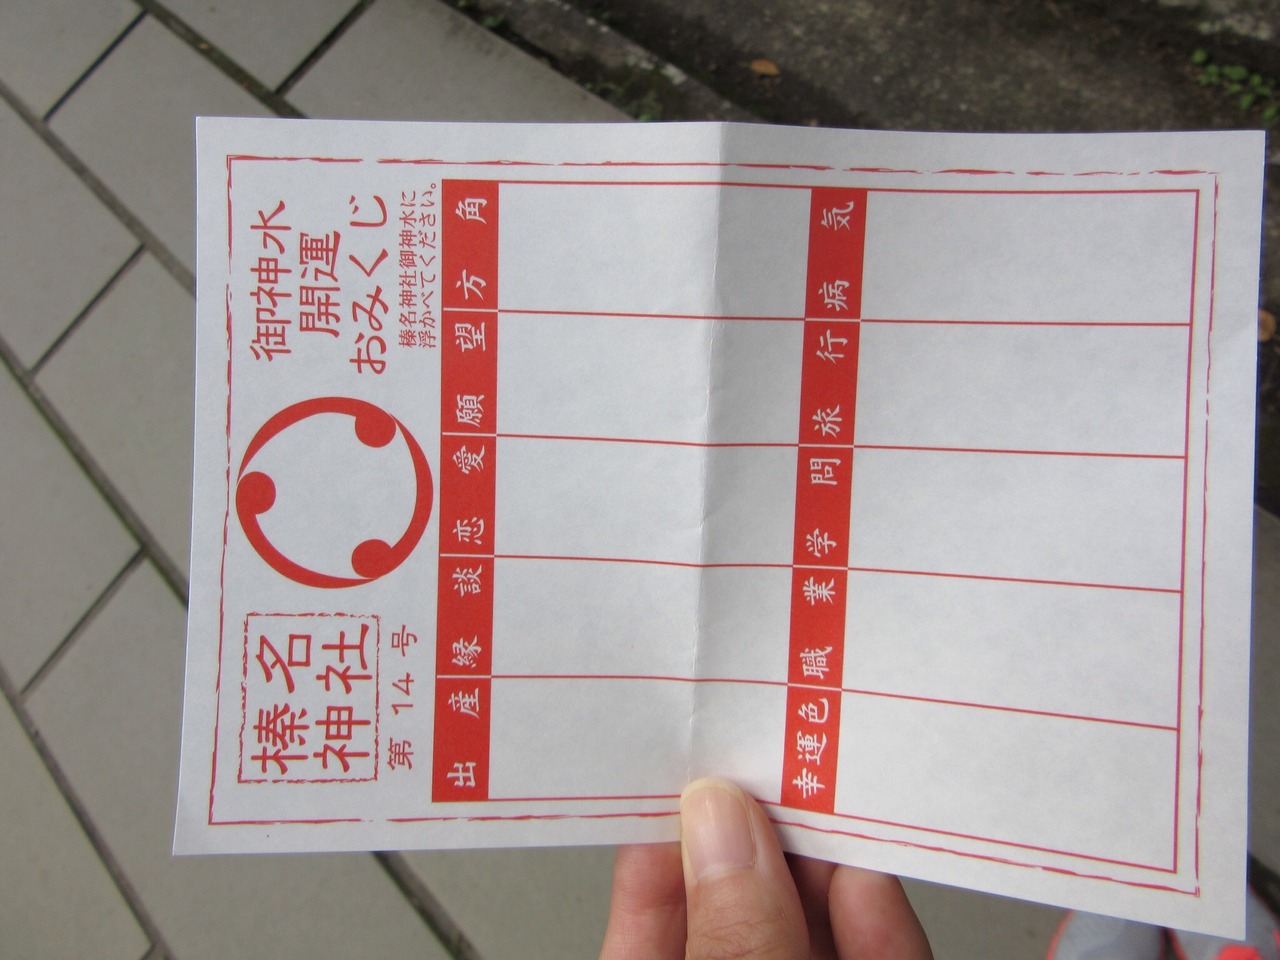 榛名
神社
第14号
御神水
開運
おみくじ
榛名神社御神水に
浮かべてください。
方角
願望
恋愛
縁談
出産
病気
旅行
学問
職業
幸運色